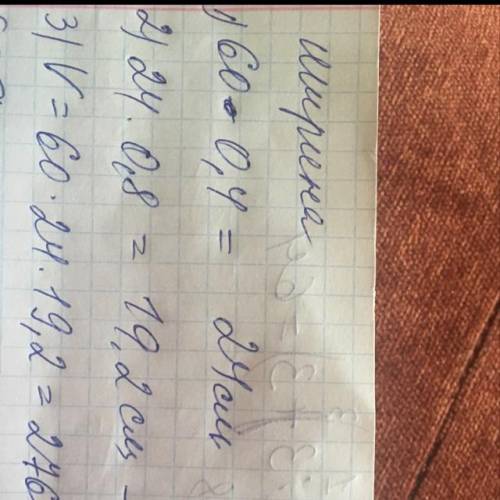 Ширина
1) 60 · 0,4 = 24см
2) 24 · 0,8 = 19,2см -
3) V = 60 · 24 · 19,2 = 276